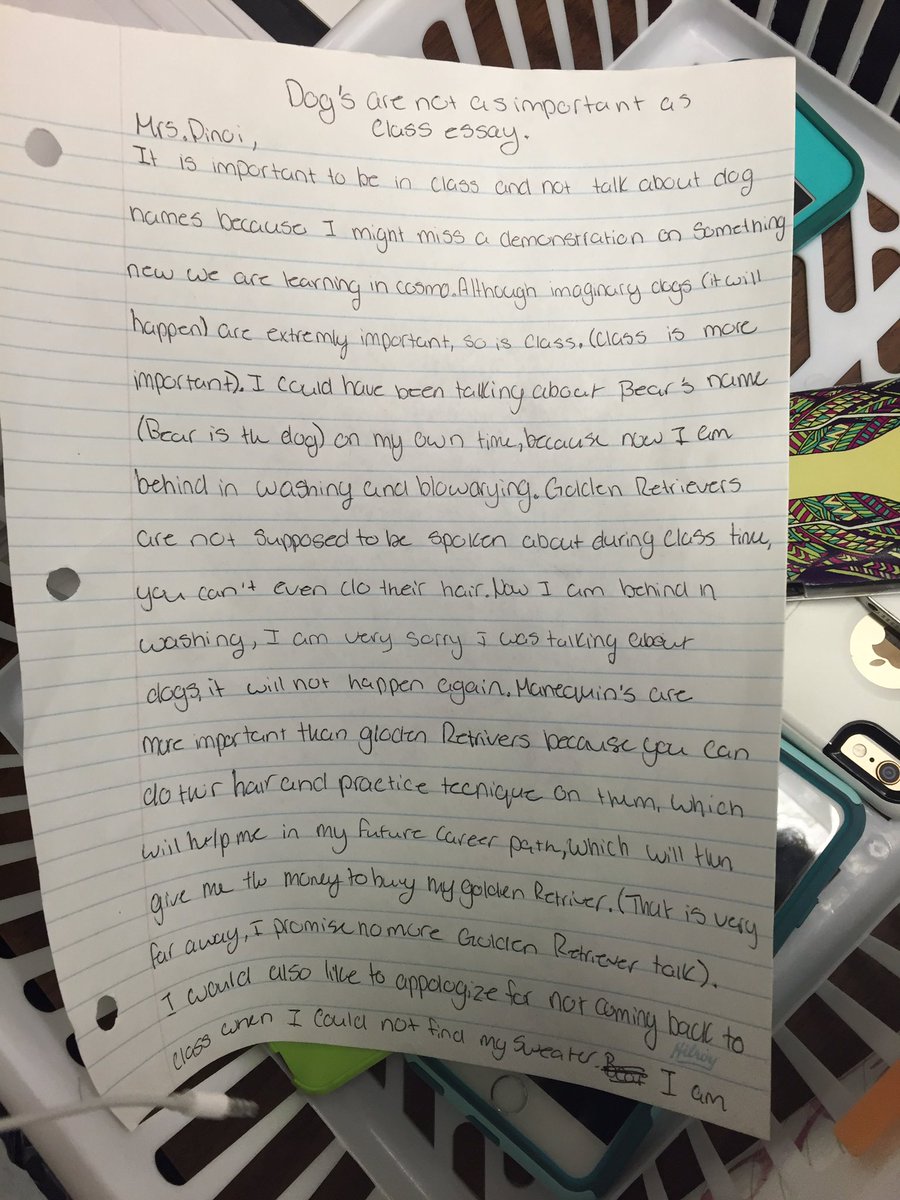 Dog's are not as important as
class essay.
Mrs. Dinoi,
It is important to be in class and not talk about dog
names because I might miss a demonstration on something
new we are learning in cosmo. Although imaginary dogs (it will
happen) are extremly important, so is class. (Class is more
important). I could have been talking about Bear's name
(Bear is the dog) on my own time, because now I am
behind in washing and blowdrying. Golden Retrievers
are not supposed to be spoken about during class time,
you can't even do their hair. Now I am behind in
washing, I am very sorry I was talking about
dogs, it will not happen again. Manequin's are
more important than gloden Retrivers because you can
do their hair and practice tecnique on them. Which
will help me in my future career path, which will then
give me the money to buy my golden Retriver. (That is very
far away, I promise no more Golden Retriever talk).
I would also like to appologize for not coming back to
class when I could not find my sweater. I am
Hilroy